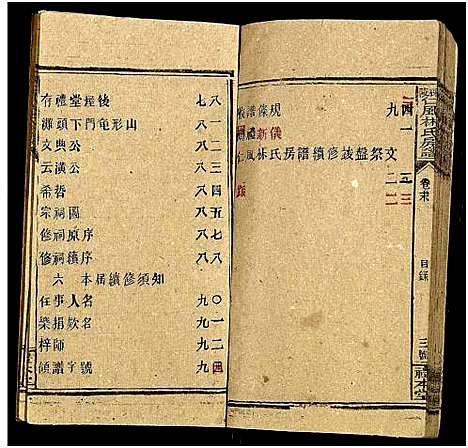 存禮堂後 七八
源頭下門龟形山 八一
文典公 八二
云潢公 八三
希哲 八四
宗祠圖 八五
修祠原序 八七
修祠續序 八八
六 本届續修須知
任事人名 九〇
樂捐欵名 九一
梓師 九二
領譜字號 九四
譜條規 九四
禮新儀 一
仁風林氏房譜續修祭文
仁風林氏房譜
卷末
目錄